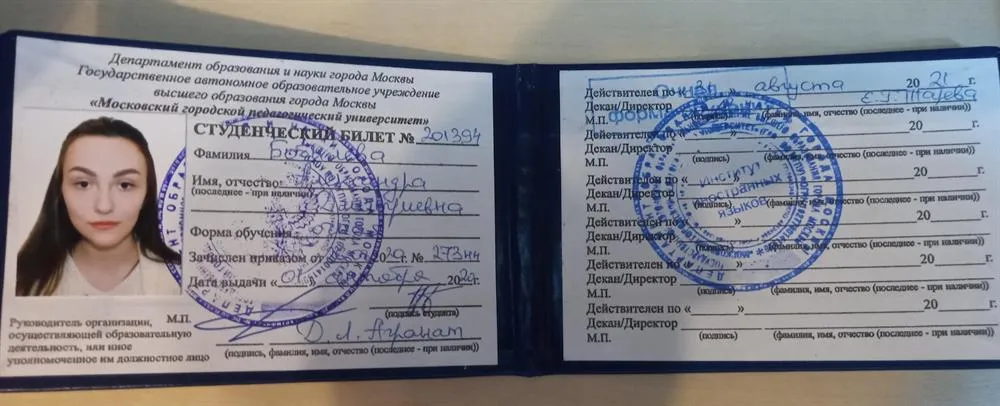 Департамент образования и науки города Москвы
Государственное автономное образовательное учреждение
высшего образования города Москвы
«Московский городской педагогический университет»
СТУДЕНЧЕСКИЙ БИЛЕТ № 201394
Фамилия
Имя, отчество
(последнее - при наличии)
Форма обучения
Зачислен приказом от 20 г. № 273
Дата выдачи «01» сентября 2020 г.
(подпись студента)
М.П.
Руководитель организации,
осуществляющей образовательную
деятельность, или иное
уполномоченное им должностное лицо
Д.Л. Агранат
(подпись, фамилия, имя, отчество (последнее - при наличии))
Действителен по «31» августа 2021 г.
Декан/Директор Е.Г. Тарева
М.П. (подпись) (фамилия, имя, отчество (последнее - при наличии))
Действителен по « » 20 г.
Декан/Директор
М.П. (подпись) (фамилия, имя, отчество (последнее - при наличии))
Действителен по « » 20 г.
Декан/Директор
М.П. (подпись) (фамилия, имя, отчество (последнее - при наличии))
Действителен по « » 20 г.
Декан/Директор
М.П. (подпись) (фамилия, имя, отчество (последнее - при наличии))
Действителен по « » 20 г.
Декан/Директор
М.П. (подпись) (фамилия, имя, отчество (последнее - при наличии))
Действителен по « » 20 г.
Декан/Директор
М.П. (подпись) (фамилия, имя, отчество (последнее - при наличии))
Институт
иностранных
языков